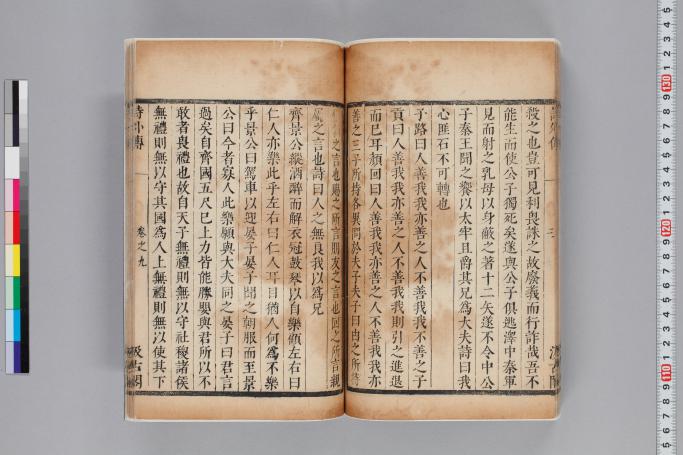 詩外傳 三 汲古閣
殺之也豈可見利畏誅之故廢義而行詐哉吾不
能生而使公子獨死矣遂與公子俱逃澤中秦軍
見而射之乳母以身蔽之著十二矢遂不令中公
子秦王聞之饗以太牢且爵其兄為大夫詩曰我
心匪石不可轉也
子路曰人善我我亦善之人不善我我不善之子
貢曰人善我我亦善之人不善我我則引之進退
而已耳顏回曰人善我我亦善之人不善我我亦
善之三子所持各異問於夫子夫子曰由之所持
之言也賜之所言朋友之言也回之所言親
屬之言也詩曰人之無良我以為兄
齊景公縱酒醉而解衣冠鼓琴以自樂顧左右曰
仁人亦樂此乎左右曰仁人耳目猶人何為不樂
乎景公曰駕車以迎晏子晏子聞之朝服而至景
公曰今者寡人此樂願與大夫同之晏子曰君言
過矣自齊國五尺已上力皆能勝嬰與君所以不
敢者畏禮也故自天子無禮則無以守社稷諸侯
無禮則無以守其國為人上無禮則無以使其下
詩外傳 卷之九 汲古閣
5 4 3 2 1 130 9 8 7 6 5 4 3 2 1 120 9 8 7 6 5 4 3 2 1 110 9 8 7 6 5